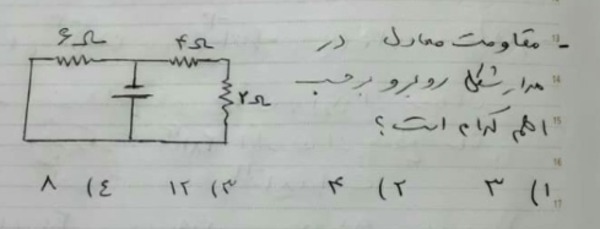 - مقاومت معادل در
مدار شکل روبرو برحسب
اهم کدام است؟
۶Ω ۴Ω
۲Ω
۱) ۳ ۲) ۴ ۳) ۱۲ ۴) ۸
13
14
15
16
17